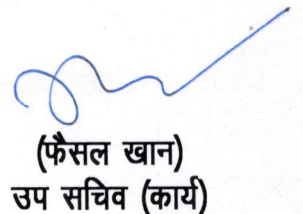 (फैसल खान)
उप सचिव (कार्य)